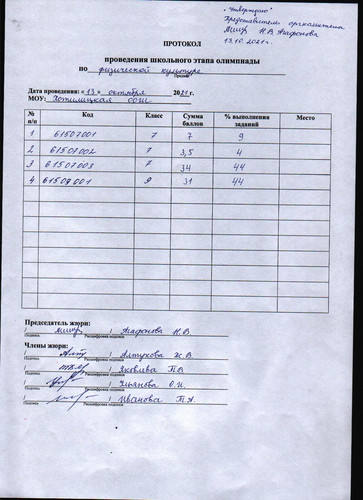 „Утверждаю"
Председатель оргкомитета
Н.В. Агафонова
13.10.2021г.
ПРОТОКОЛ
проведения школьного этапа олимпиады
по физической культуре
Предмет
Дата проведения: « 13 » октября 2021 г.
МОУ: Хотимлицкая СОШ
№ п/п Код Класс Сумма баллов % выполнения заданий Место
1 61507001 7 7 9
2 61507002 7 3,5 4
3 61507003 7 34 44
4 61509001 9 31 44
Председатель жюри:
/ / Агафонова Н.В
Подпись Расшифровка подписи
Члены жюри:
/ / Алтухова Ж.В.
Подпись Расшифровка подписи
/ / Яковлева Т.В
Подпись Расшифровка подписи
/ / Ульянова О.И.
Подпись Расшифровка подписи
/ / Иванова Т.А.
Подпись Расшифровка подписи